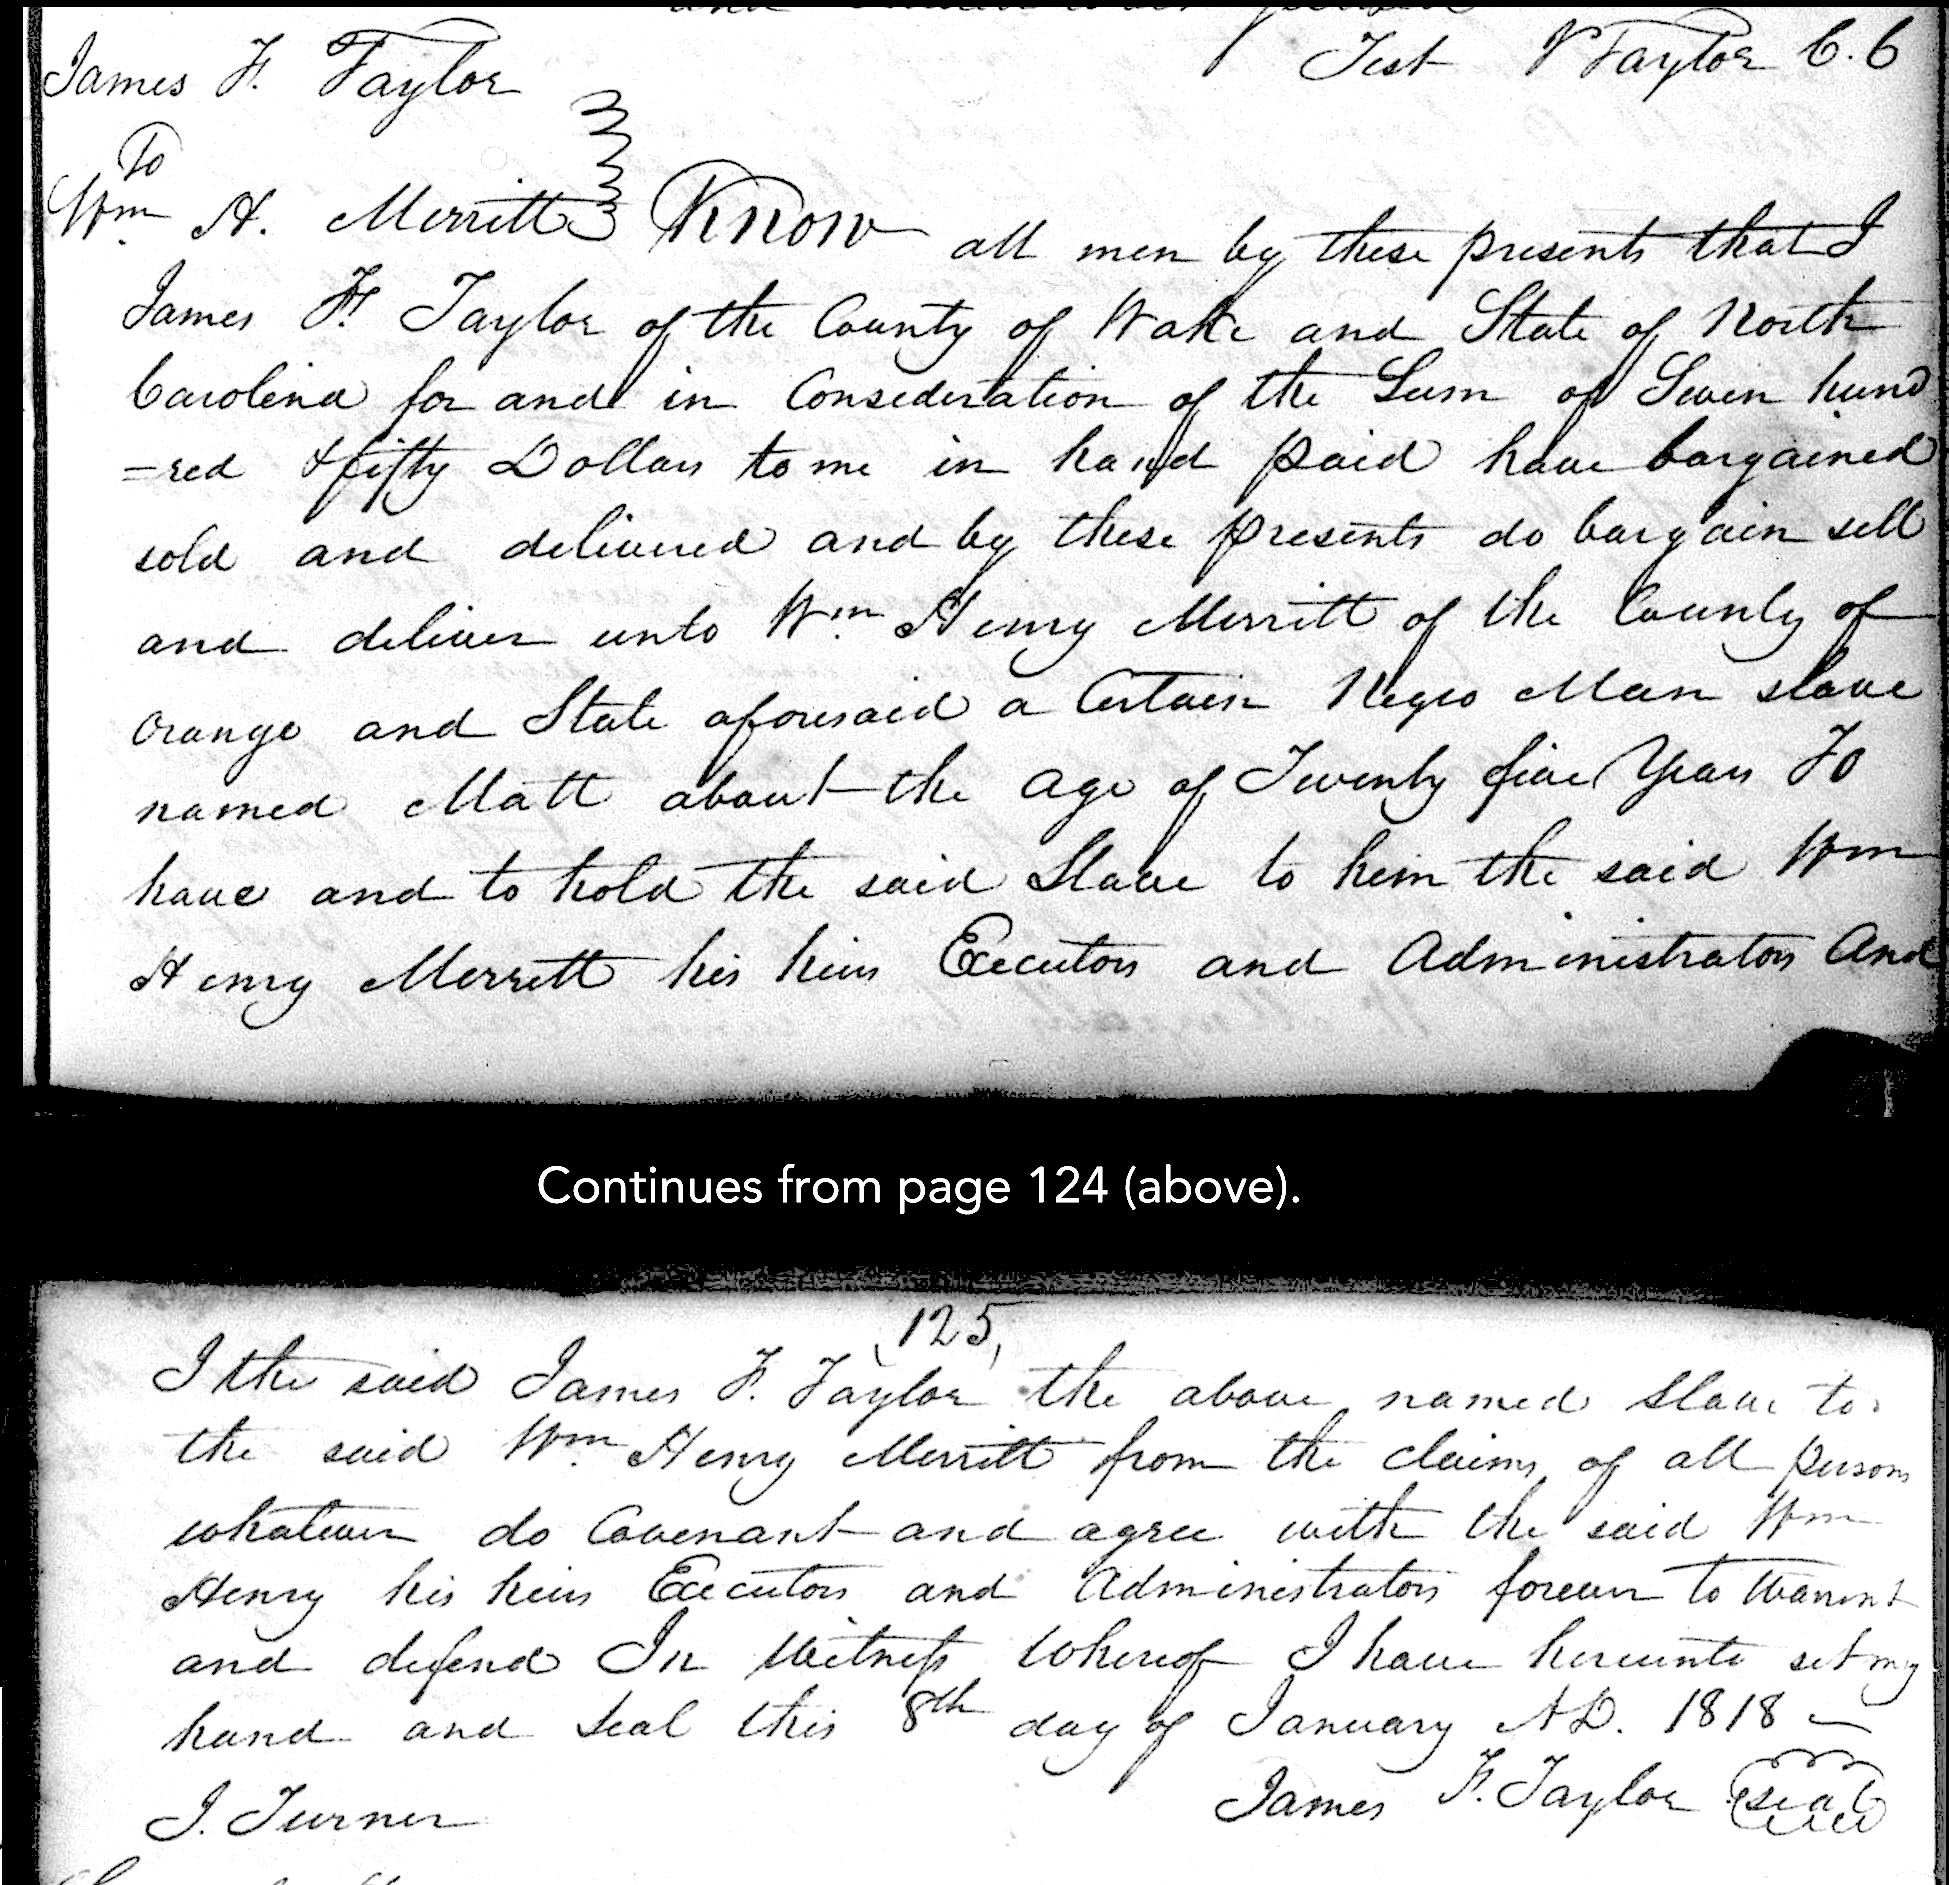 James F. Taylor
Test J Taylor C.C
To
Wm H. Merritt Know all men by these presents that I
James F. Taylor of the County of Wake and State of North
Carolina for and in Consideration of the Sum of Seven hund
=red & fifty Dollars to me in hand paid have bargained
sold and delivered and by these presents do bargain sell
and deliver unto Wm Henry Merritt of the County of
Orange and State aforesaid a Certain Negro Man slave
named Matt about the age of Twenty five Years To
have and to hold the said Slave to him the said Wm
Henry Merritt his heirs Executors and Administrators And
Continues from page 124 (above).
125,
I the said James F. Taylor the above named Slave to
the said Wm Henry Merritt from the claims of all persons
whatever do Covenant and agree with the said Wm
Henry his heirs Executors and Administrators forever to Warrant
and defend In Witness Whereof I have hereunto set my
hand and seal this 8th day of January A.D. 1818
J. Turner
James F. Taylor seal